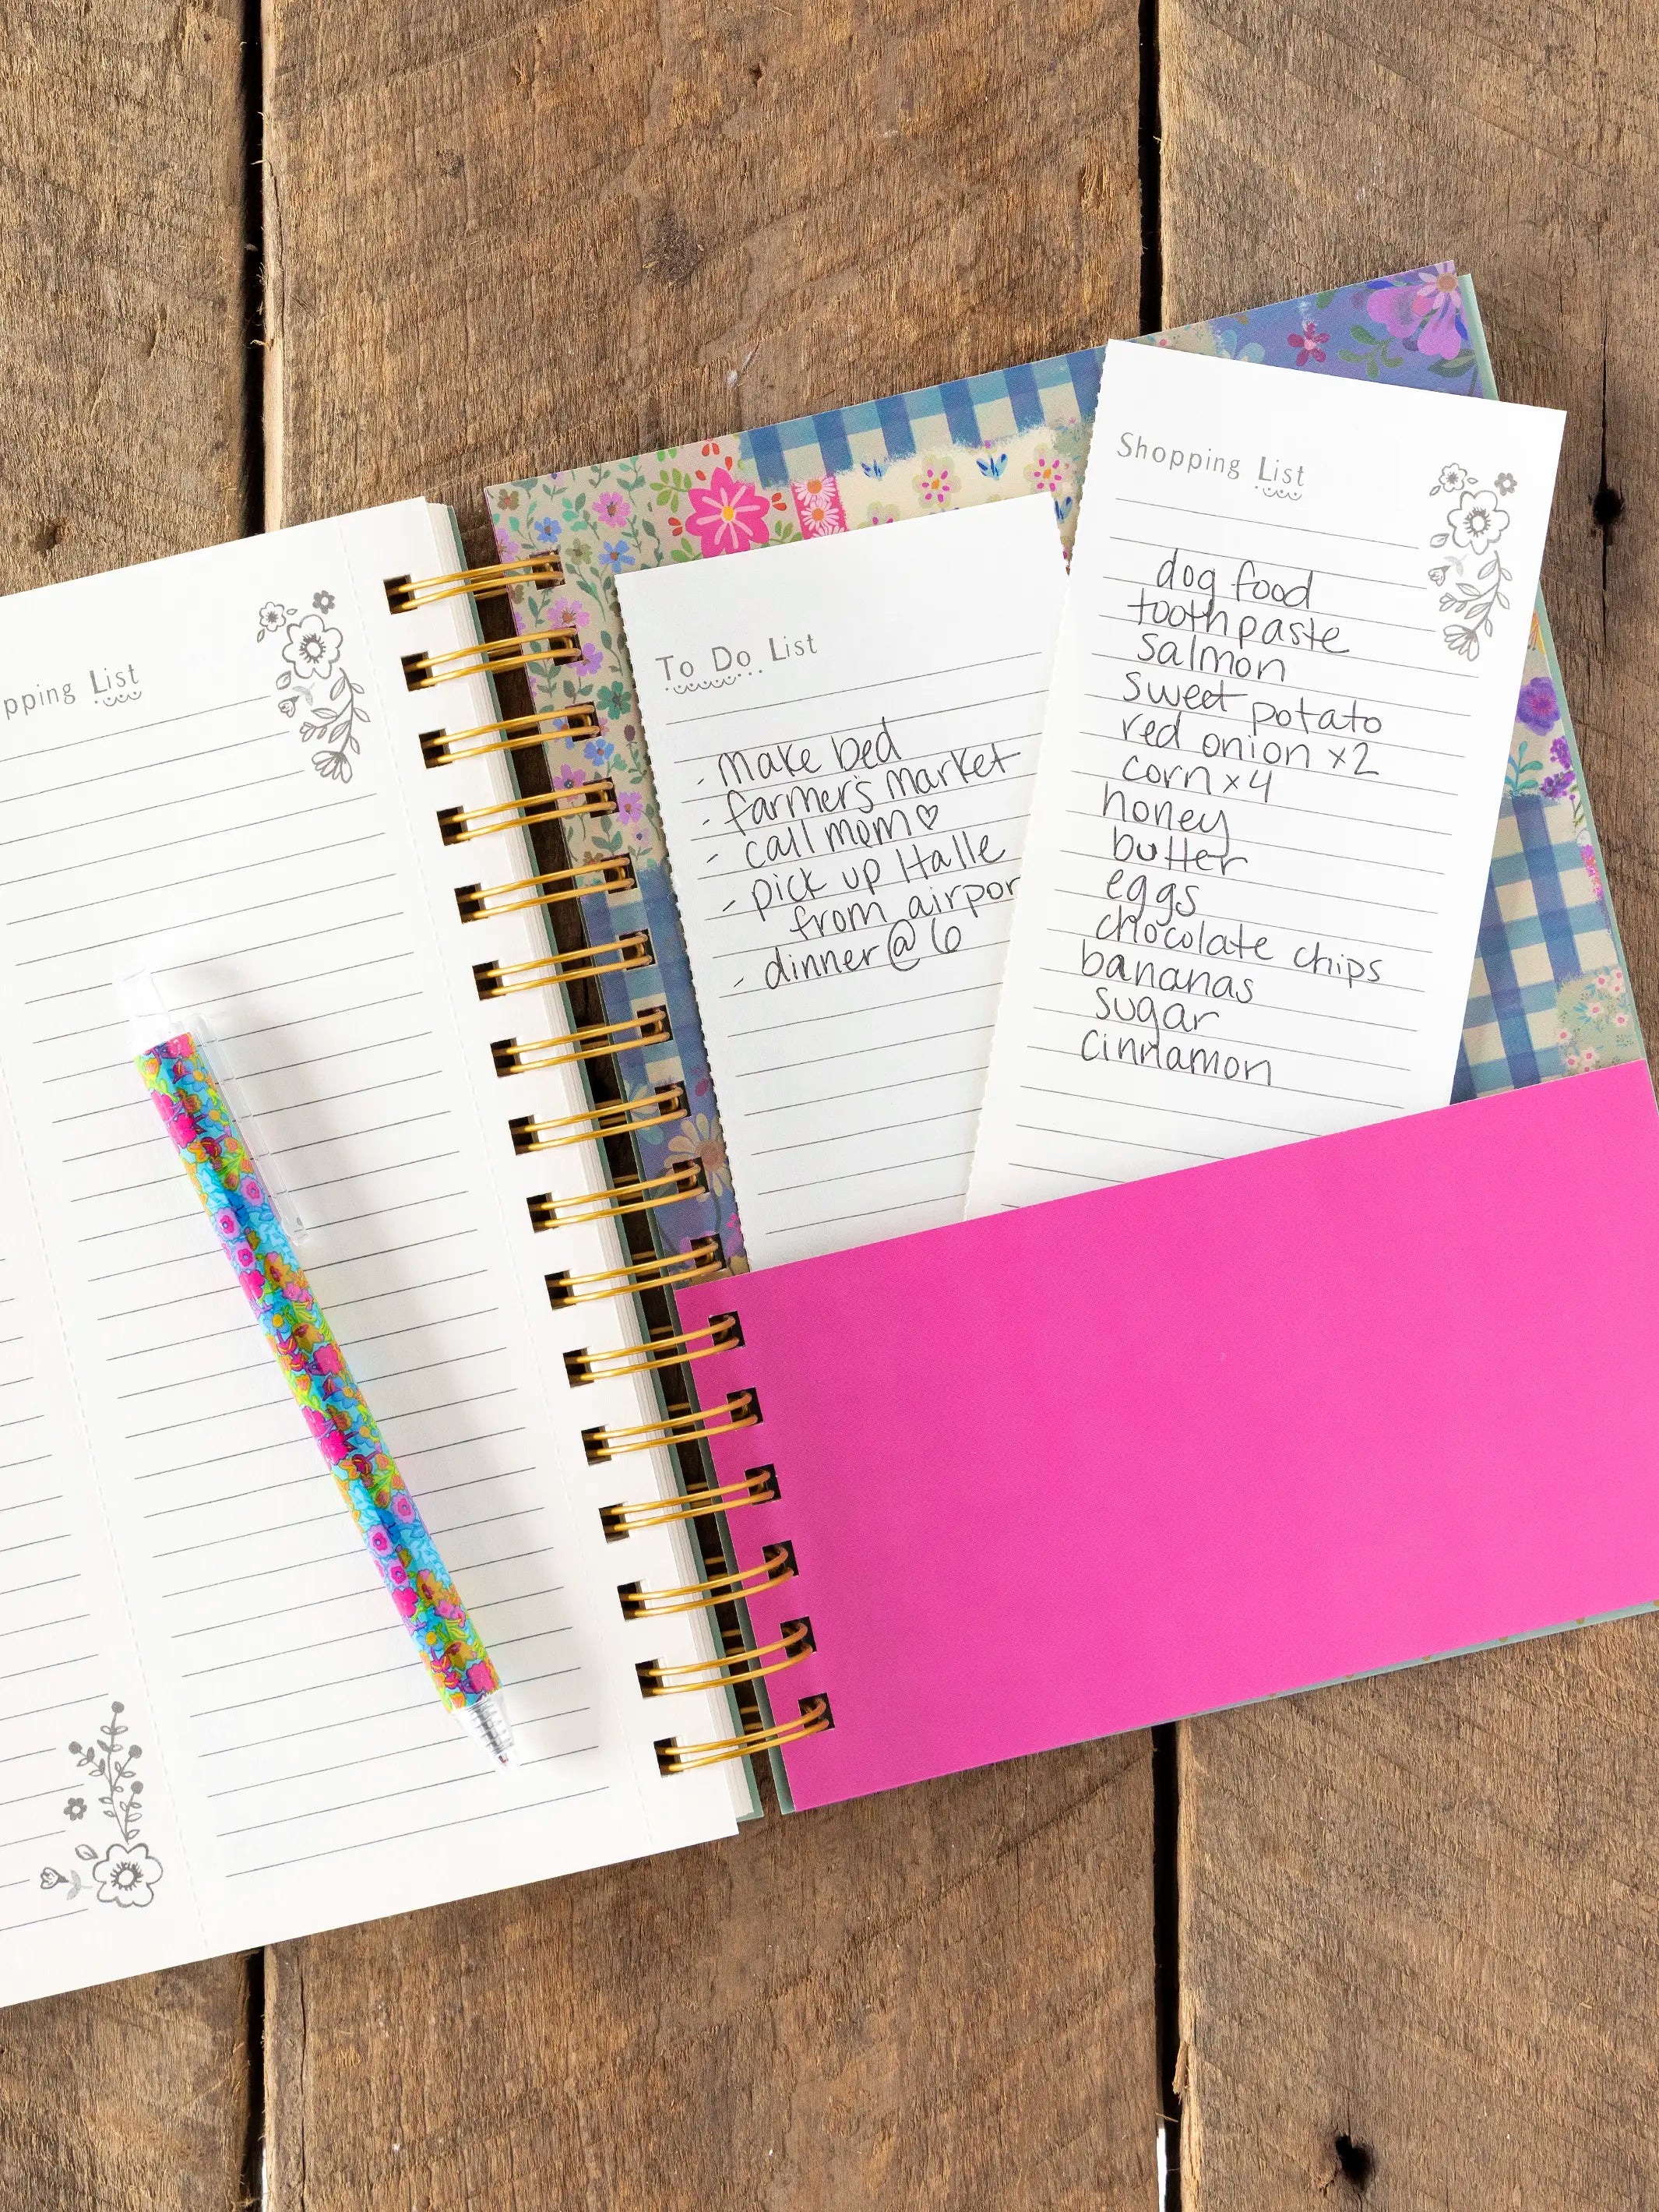 pping List
To Do List
- make bed
- farmer's market
- call mom♡
- pick up Halle
from airpor
- dinner @ 6
Shopping List
dog food
toothpaste
salmon
sweet potato
red onion x2
corn x4
honey
butter
eggs
chocolate chips
bananas
sugar
cinnamon